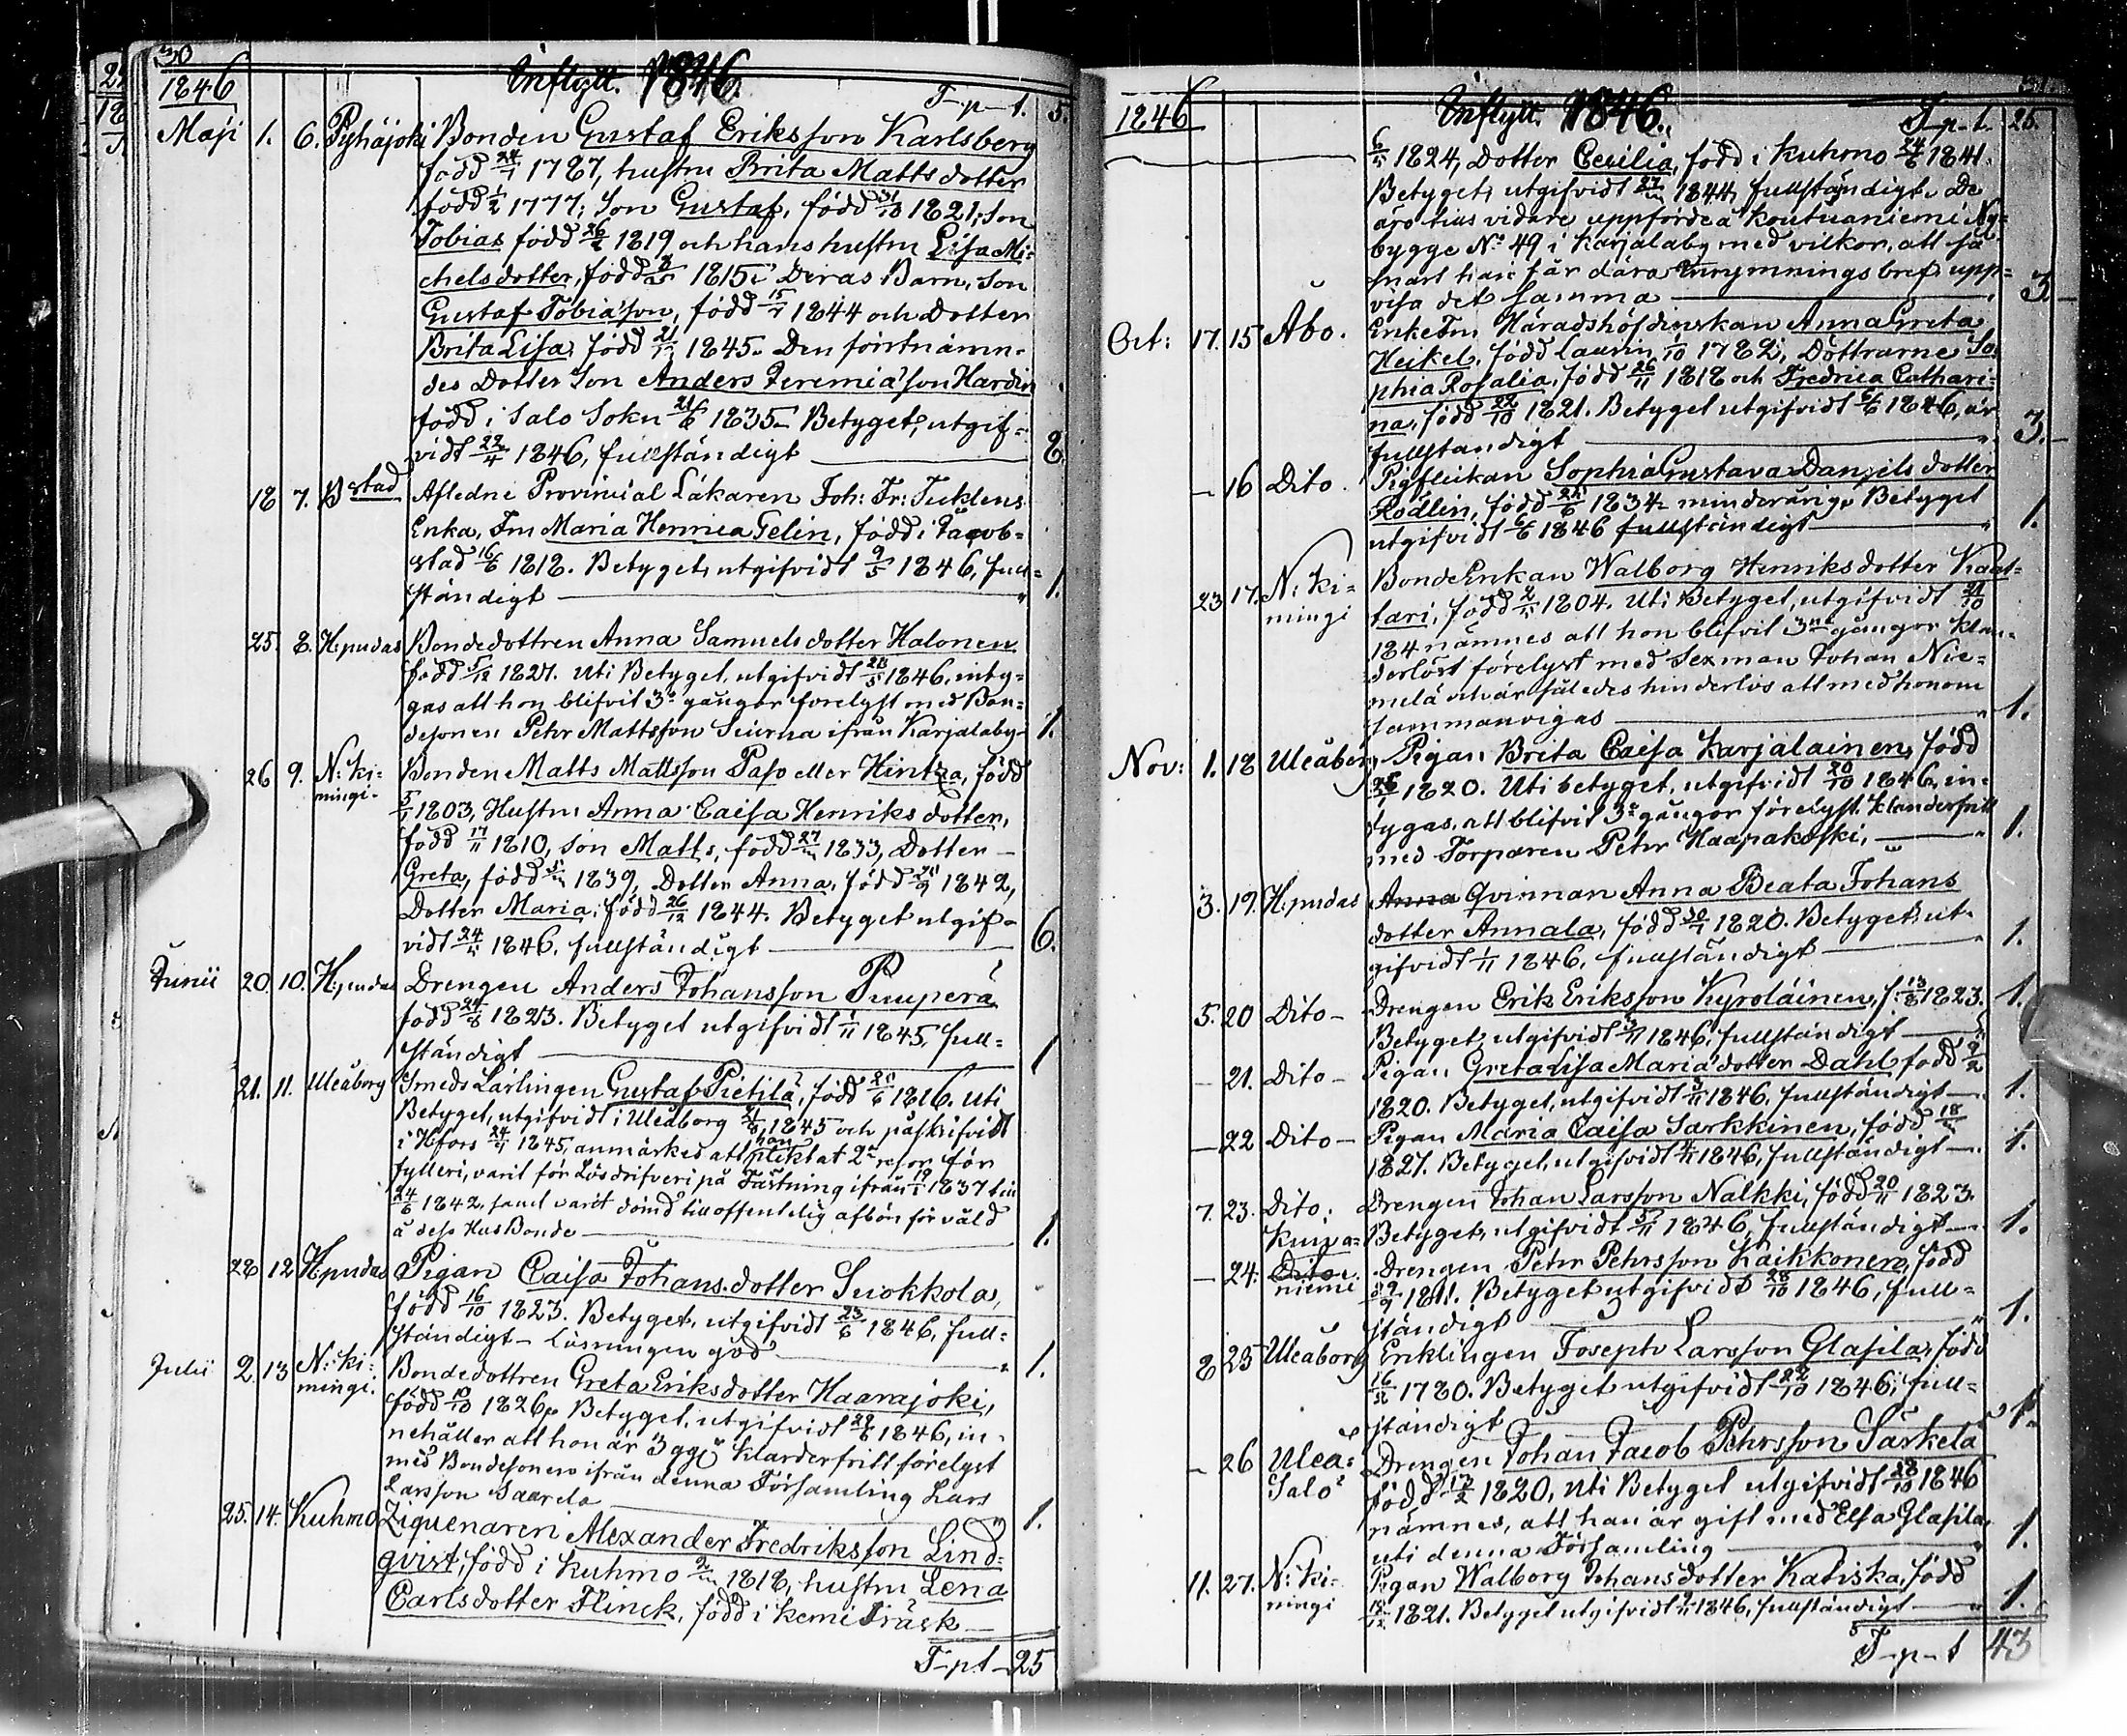 30
Inflytt. 1846.
1846
T-p-t. 5.
Maji 1. 6. Pyhäjoki Bonden Gustaf Eriksson Karlsberg
född 24/1 1787, hustru Brita Matts dotter
född 1/2 1777; Son Gustaf, född 31/10 1821; Son
Tobias född 26/2 1819 och hans hustru Lisa Mi=
chelsdotter, född 1815; Deras Barn, Son
Gustaf Tobiasson, född 1844 och Dotter
Brita Lisa, född 1845. Den förstnämn-
des Dotter Son Anders Jeremiasson Hardin
född i Salo Sokn 21/6 1835. Betyget, utgif=
vidt 22/4 1846, fullständigt 8.
18 7. Bstad Afledne Provincial Läkaren Joh: Fr: Ticklens
Enka, Fru Maria Henrica Telin, född i Jacob=
stad 16/6 1818. Betyget, utgifvidt 9/5 1846, full=
ständigt 1.
25. 8. H:pudas Bondedottren Anna Samuels dotter Halonen
född 5/12 1827. Uti Betyget, utgifvidt 1846, inty=
gas att hon blifvit 3e gångor förelyst med Bon=
desonen Pehr Mattsson Siurua ifrån Karjalaby 1.
26 9. N: ki=
mingi.
Bonden Matts Mattsson Paso eller Hintza, född
5/1 1803, Hustru Anna Caisa Henriks dotter,
född 17/11 1810, Son Matts, född 1833, Dotter
Greta, född 1839, Dotter Anna, född 1842,
Dotter Maria, född 26/12 1844. Betyget utgif=
vidt 24/5 1846, fullständigt 6.
Junii 20. 10. H:pudas Drengen Anders Johansson Puuperä
född 24/8 1823. Betyget utgifvidt 1/11 1845, full=
ständigt 1
21. 11. Uleåborg Smeds Lärlingen Gustaf Pietilä, född 1816. Uti
Betyget, utgifvidt i Uleåborg 1845 och påskrifvidt
i Hfors 1845, anmärkes att han pliktat 2e resor för
fylleri, varit för Lösdrifveri på Fästning ifrån 1837 till
24/6 1842, samt varit dömd till offentelig afbön för våld
å dess Husbonde 1.
28 12 H:pudas Pigan Caisa Johans dotter Suokkola,
född 16/10 1823. Betyget, utgifvidt 23/6 1846, full=
ständigt – Läsningen god 1.
Julii 2. 13 N: ki=
mingi.
Bondedottren Greta Eriksdotter Haarajoki,
född 10/10 1826. Betyget, utgifvidt 1846, in-
nehåller att hon är 3 ggr klanderfritt förelyst
med Bondesonen ifrån denna Församling Lars
Larsson Saarela 1.
25. 14. Kuhmo Ziguenaren Alexander Fredriksson Lind=
qvist, född i Kuhmo 1818, hustru Lena
Carlsdotter Flinck, född i Kemi Träsk
T-pt- 25
Inflytt. 1846.
1846
T-p-t. 25.
1824, Dotter Cecilia, född i Kuhmo 24/6 1841.
Betyget, utgifvidt 1844, fullständigt. De
äro tills vidare uppförde å Koutuaniemi Ny=
bygge No 49 i Karjalaby med vilkor, att så
snart han får dära Inrymnings bref, upp=
visa det samma 3
Oct: 17. 15 Åbo. Enke Fru Häradshöfdinskan Anna Greta
Heikel, född Laurin 1782; Döttrarne So=
phia Rosalia, född 26/11 1818 och Fredrica Cathari=
na, född 22/10 1821. Betyget utgifvidt 1846, är
fullständigt 3.
– 16 Dito. Pigflickan Sophia Gustava Daniels dotter
Rödlin, född 1834. minderårig. Betyget
utgifvidt 1846 fullständigt 1.
23 17. N: ki=
mingi
Bonde Enkan Walborg Henriksdotter Kaat=
tari, född 1804. Uti Betyget, utgifvidt
184 nämnes att hon blifvit 3ne gångor klan=
derlöst förelyst med Sexman Johan Nie=
melä och är således hinderlös att med honom
sammanvigas 1.
Nov: 1. 18 Uleåborg Pigan Brita Caisa Karjalainen, född
1820. Uti betyget, utgifvidt 20/10 1846, in=
tygas, att blifvit 3e gångor förelyst klanderfritt
med Torparen Pehr Haapakoski, 1.
3. 19. H:pudas Anna Qvinnan Anna Beata Johans
dotter Annala, född 1820. Betyget, ut-
gifvidt 1/11 1846, fullständigt 1.
5. 20 Dito – Drengen Erik Eriksson Kyroläinen, f: 13/8 1823. 1.
Betyget, utgifvidt 1846, fullständigt
– 21. Dito – Pigan Greta Lisa Maria dotter Dahl född 9/2
1820. Betyget, utgifvidt 1846, fullständigt 1.
– 22 Dito – Pigan Maria Caisa Sarkkinen, född
1827. Betyget, utgifvidt 1846, fullständigt 1.
7. 23. Dito: Drengen Johan Larsson Nalkki, född 20/11 1823.
Betyget, utgifvidt 1846, fullständigt 1.
– 24. Kuiva=
Dito.
niemi
Drengen Pehr Pehrsson Kaikkonen, född
1811. Betyget utgifvidt 28/10 1846, full=
ständigt 1.
8 25 Uleåborg Enklingen Joseph Larsson Glasila, född
1780. Betyget utgifvidt 22/10 1846, full=
ständigt 1.
– 26 Uleå=
Salo
Drengen Johan Jacob Pehrsson Särkelä
född 1820, Uti Betyget utgifvidt 28/10 1846
nämnes, att han är gift med Elsa Glasila,
uti denna Församling 1.
11. 27. N: ki=
mingi
Pigan Walborg Johansdotter Katiska, född
1821. Betyget utgifvidt 1846, fullständigt 1.
T-p-t 43